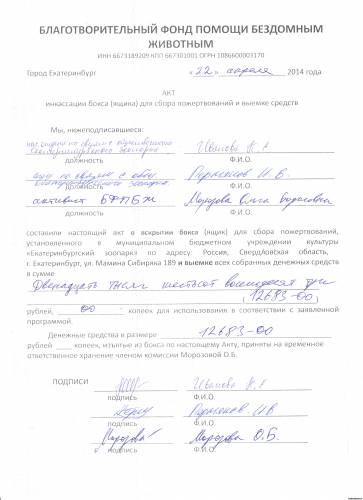 БЛАГОТВОРИТЕЛЬНЫЙ ФОНД ПОМОЩИ БЕЗДОМНЫМ
ЖИВОТНЫМ
ИНН 6673189209 КПП 667301001 ОГРН 1086600003170
Город Екатеринбург «22» апреля 2014 года
АКТ
инкассации бокса (ящика) для сбора пожертвований и выемке средств
Мы, нижеподписавшиеся:
Екатеринбургского зоопарка Иванова К. А
должность Ф.И.О.
по связям с общ.
Екатеринбургского зоопарка Н. В.
должность Ф.И.О.
активист БФПБЖ Морозова Ольга Борисовна
должность Ф.И.О.
составили настоящий акт о вскрытии бокса (ящик) для сбора пожертвований,
установленного в муниципальном бюджетном учреждении культуры
«Екатеринбургский зоопарк» по адресу: Россия, Свердловская область,
г. Екатеринбург, ул. Мамина Сибиряка 189 и выемке всех собранных денежных средств
в сумме
Двенадцать тысяч шестьсот восемьдесят три
(12683-00)
рублей, 00 копеек для использования в соответствии с заявленной
программой.
Денежные средства в размере 12683-00
рублей ____ копеек, изъятые из бокса по настоящему Акту, приняты на временное
ответственное хранение членом комиссии Морозовой О.Б.
ПОДПИСИ Иванова К. А
подпись Ф.И.О.
Н В
подпись Ф.И.О.
Морозова Морозова О.Б.
подпись Ф.И.О.